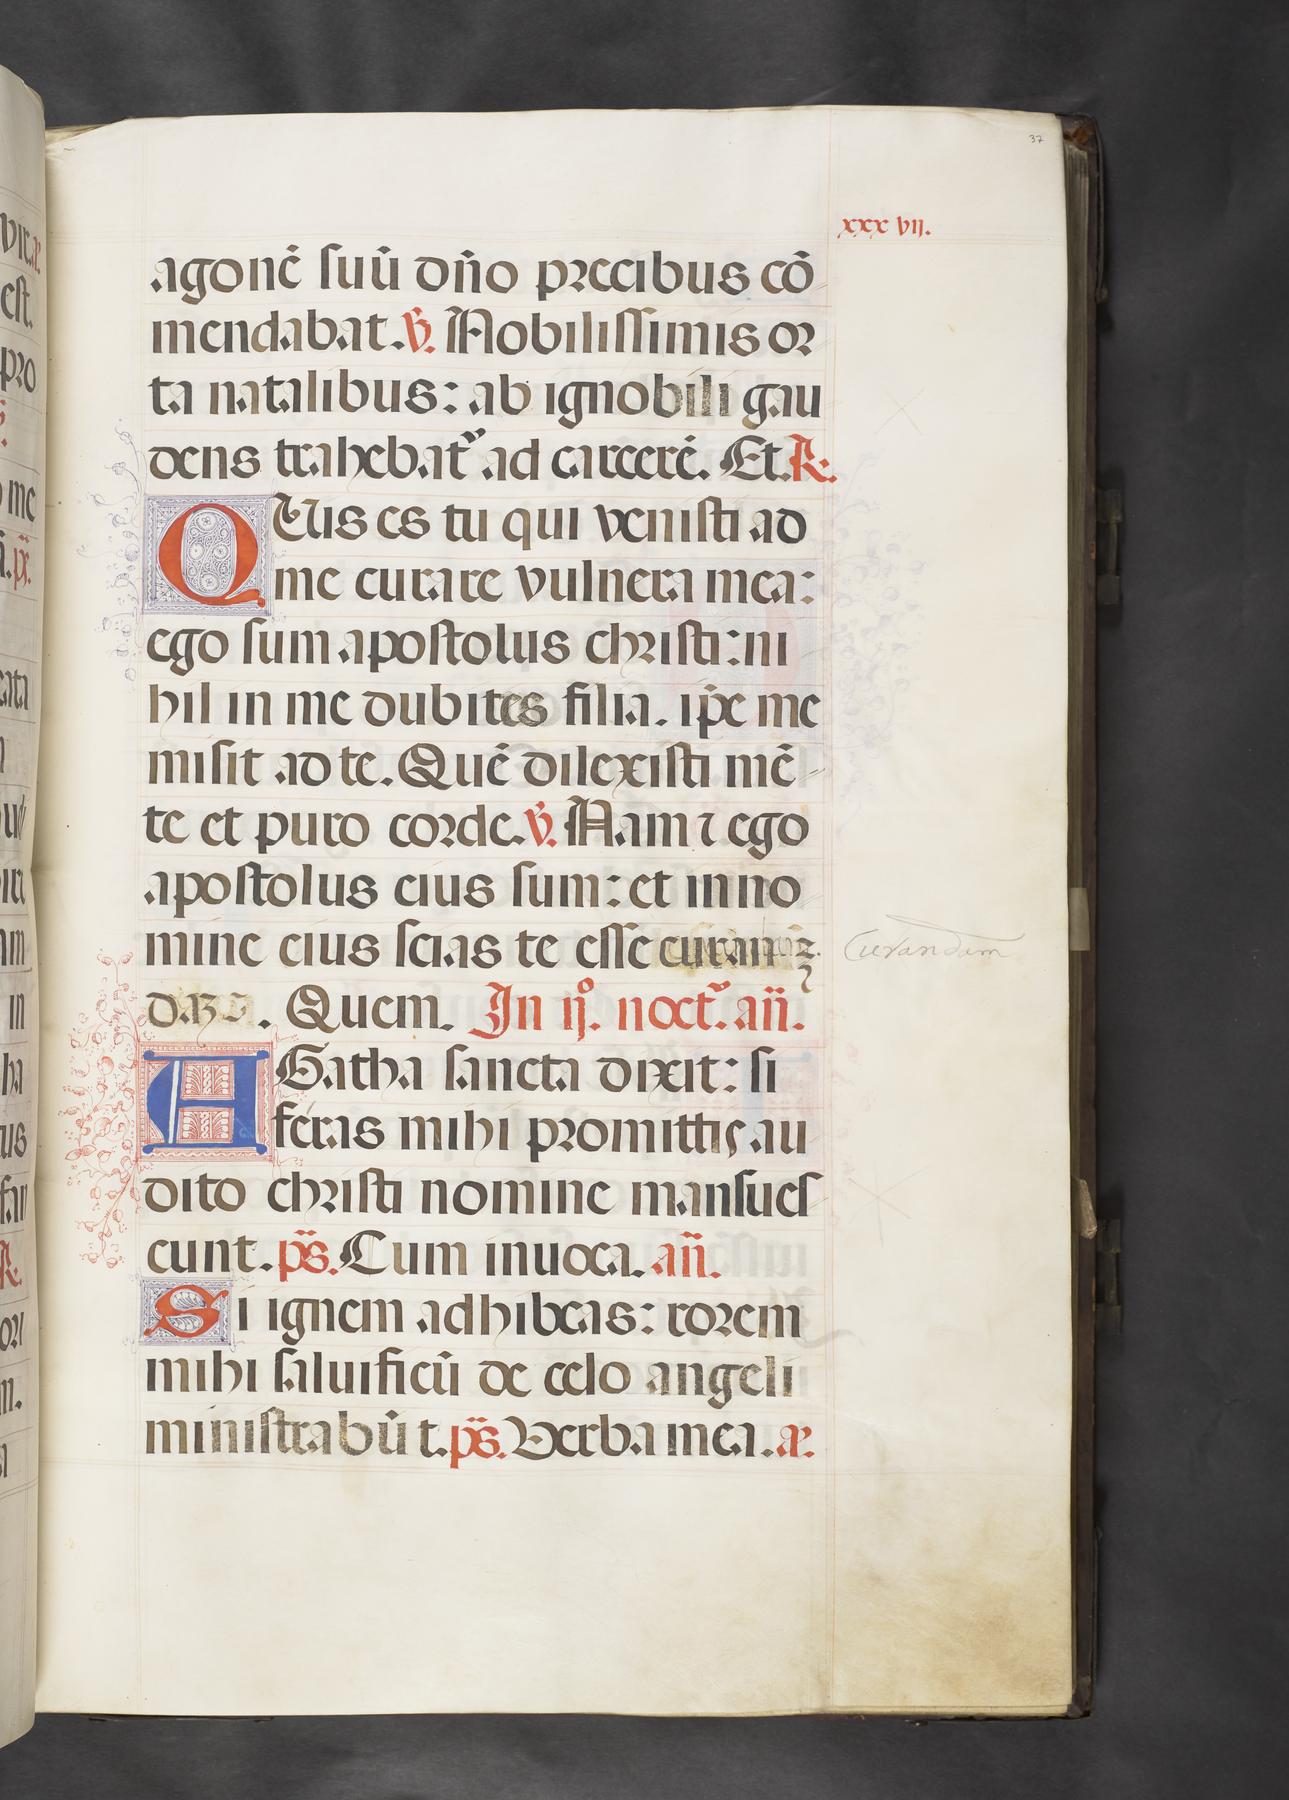 37
xxxvij.
agonē suū dn̄o precibus cō
mendabat. V̄. Nobilissimis or
ta natalibus: ab ignobili gau
dens trahebat᷑ ad carcerē. Et. R.
QUis es tu qui venisti ad
me curare vulnera mea:
ego sum apostolus christi: ni
hil in me dubites filia. ip̄e me
misit ad te. Quē dilexisti mē
te et puro corde. V̄. Nam ⁊ ego
apostolus eius sum: et in no
mine eius scias te esse curan
Curandam
. Quem. In ij°. noct᷑. an̄.
AGatha sancta dixit: si
feras mihi promittis au
dito christi nomine mansues
cunt. ps̄. Cum inuoca. an̄.
Si ignem adhibeas: rorem
mihi saluificū de celo angeli
ministrabūt. ps̄. Verba mea. ꝶ.